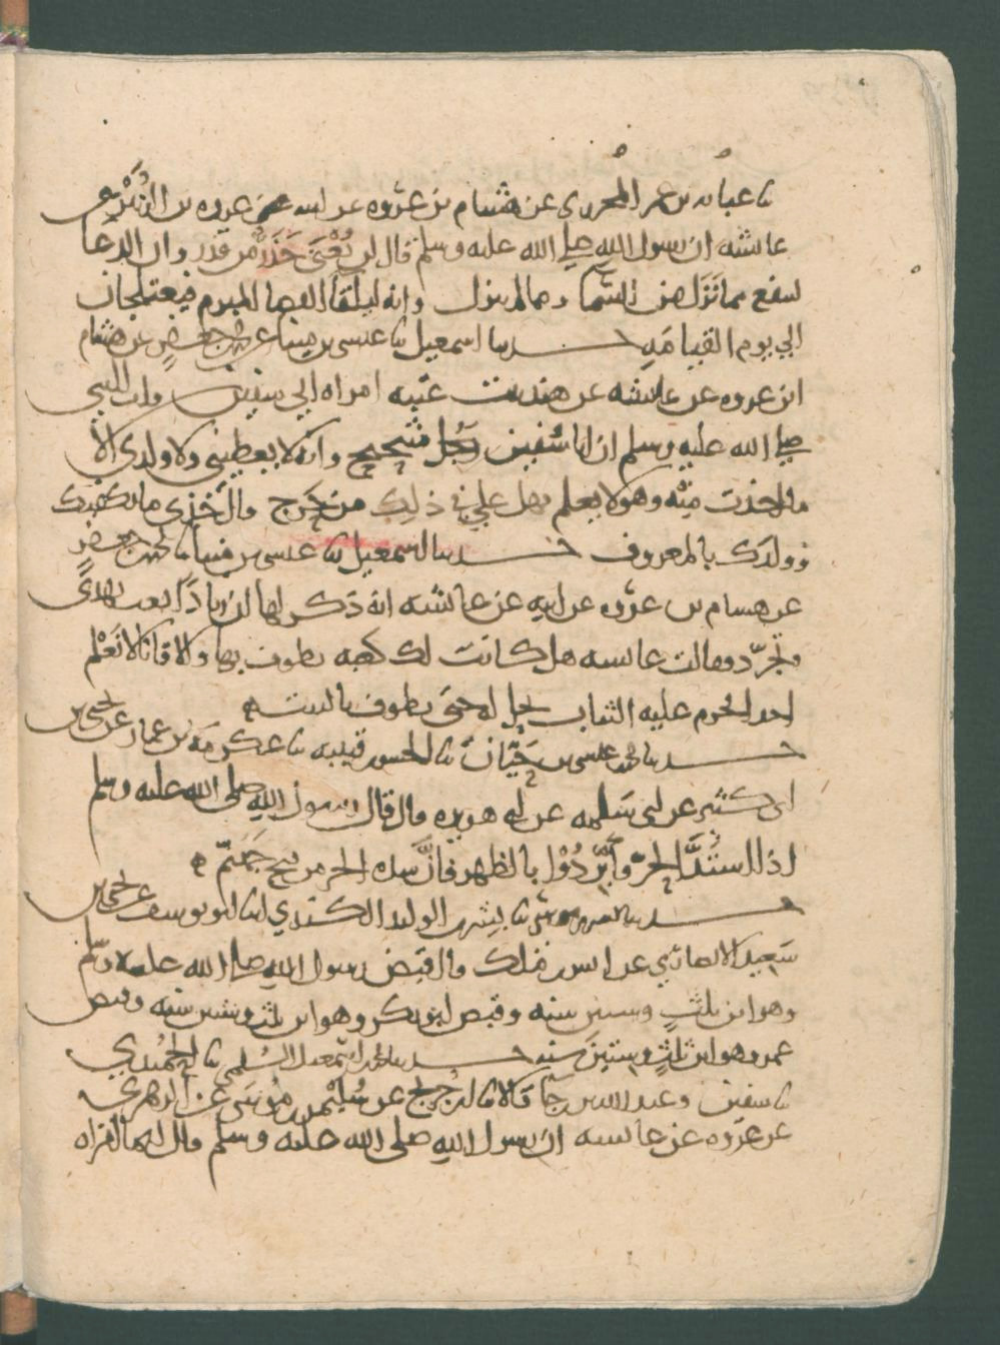 ثنا عباد بن عمر المحرزي عن هشام بن عروه عن ابيه عروه بن الزبير عن
عائشه ان رسول الله صلى الله عليه وسلم قال لن يُغْنَى حَذَر من قدر وان الدعا
لينفع مما نَزَل من السما ومما لم ينزل وانه ليلقا القضا المبرم فيعتلجان
الي يوم القيامَهِ حدثنا اسمعيل ثنا عيسى بن مينا عن محمد بن جعفرٍ عن هشام
ابن عروه عن عايشه عن هند بنت عتبه امراه ابي سفين قالت للنبي
صلى الله عليه وسلم ان ابا سُفين رَجُل شحيح وانه لا يعطيني ولا ولدي الا
ما اخذت منه وهو لا يعلم فهل علي في ذلك من حَرَج قال خُذي ما يكفيك
وولدك بالمعروف حدثنا اسمعيل ثنا عيسى بن مينا ثنا محمد بن جعفرٍ
عن هشام بن عروه عن ابيه عن عائشه انه ذكر لها ان زيادًا بعث بهدي
وتجرّد فقالت عائشه هل كانت له كعبه يطوف بها قالا فانا لا نَعْلم
احدا تحرم عليه الثياب تحل له حتى يطوف بالبيت
حدثنا محمد بن عيسى بن حَيّان ثنا الحسن بن قتيبه ثنا عكرمه بن عمار عن يحيى بن
ابي كثير عن ابي سَلمه عن ابي هريره قال قال رسول الله صلى الله عليه وسلم
اذا اشتَدَّ الحرّ فأبْرِدُوْا بالظهر فانَّ شده الحر من فيح جَهنّم
حدثنا بِشر بن الوليد الكندي ثنا ابو يوسف عن يحيى بن
سَعيد الانصاري عن انس بن ملك قال قبض رسول الله صلى الله عليه وسلم
وهو ابن ثلثٍ وستين سنه وقبض ابو بكر وهو ابن ثلث وستين سنه وقبض
عمر وهو ابن ثلثٍ وستينَ سنه حدثنا محمد بن اسمعيل السُلمي ثنا الحُميدي
ثنا سفين وعبد الله بن رجا قالا ثنا ابن جُريج عن سُليْمن بن مُوسَى عن الزهري
عن عروه عن عائشه ان رسول الله صلى الله عليه وسلم قال ايما امراه